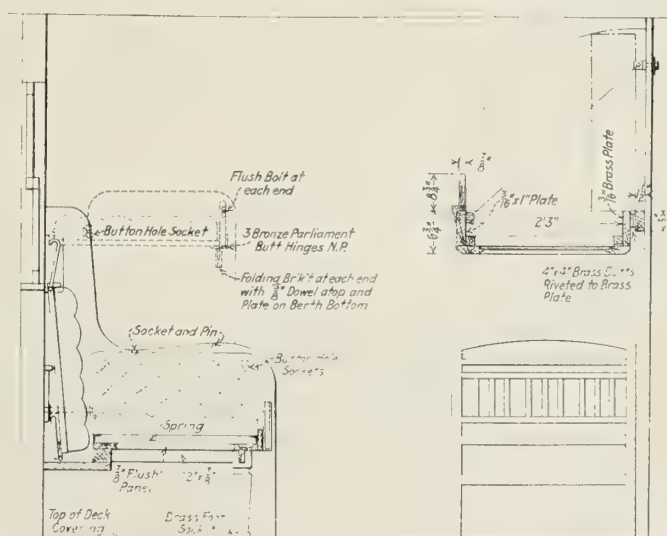 Flush Bolt at
each end
Button Hole Socket
3 Bronze Parliament
Butt Hinges N.P.
Folding Br'k't at each end
with 3/8" Dowel atop and
Plate on Berth Bottom
Socket and Pin
Button Hole
Sockets
Spring
7/8" Flush
Panel
Top of Deck
Covering
3/16" x 1" Plate
2'3"
3/16" Brass Plate
4"x4" Brass Butts
Riveted to Brass
Plate